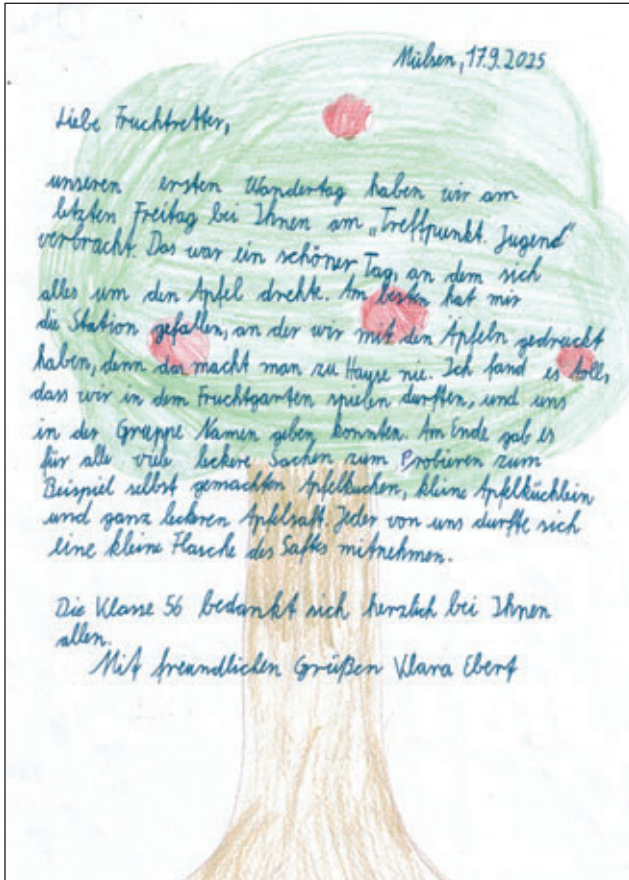 Mülsen, 17.9.2025
Liebe Fruchtretter,
unseren ersten Wandertag haben wir am
letzten Freitag bei Ihnen am „Treffpunkt Jugend"
verbracht. Das war ein schöner Tag, an dem sich
alles um den Apfel drehte. Am besten hat mir
die Station gefallen, an der wir mit den Äpfeln gedruckt
haben, denn das macht man zu Hause nie. Ich fand es toll,
dass wir in dem Fruchtgarten spielen durften, und uns
in der Gruppe Namen geben konnten. Am Ende gab es
für alle viele leckere Sachen zum Probieren zum
Beispiel selbst gemachten Apfelkuchen, kleine Apfelküchlein
und ganz leckeren Apfelsaft. Jeder von uns durfte sich
eine kleine Flasche des Saftes mitnehmen.
Die Klasse 5b bedankt sich herzlich bei Ihnen
allen.
Mit freundlichen Grüßen Klara Ebert